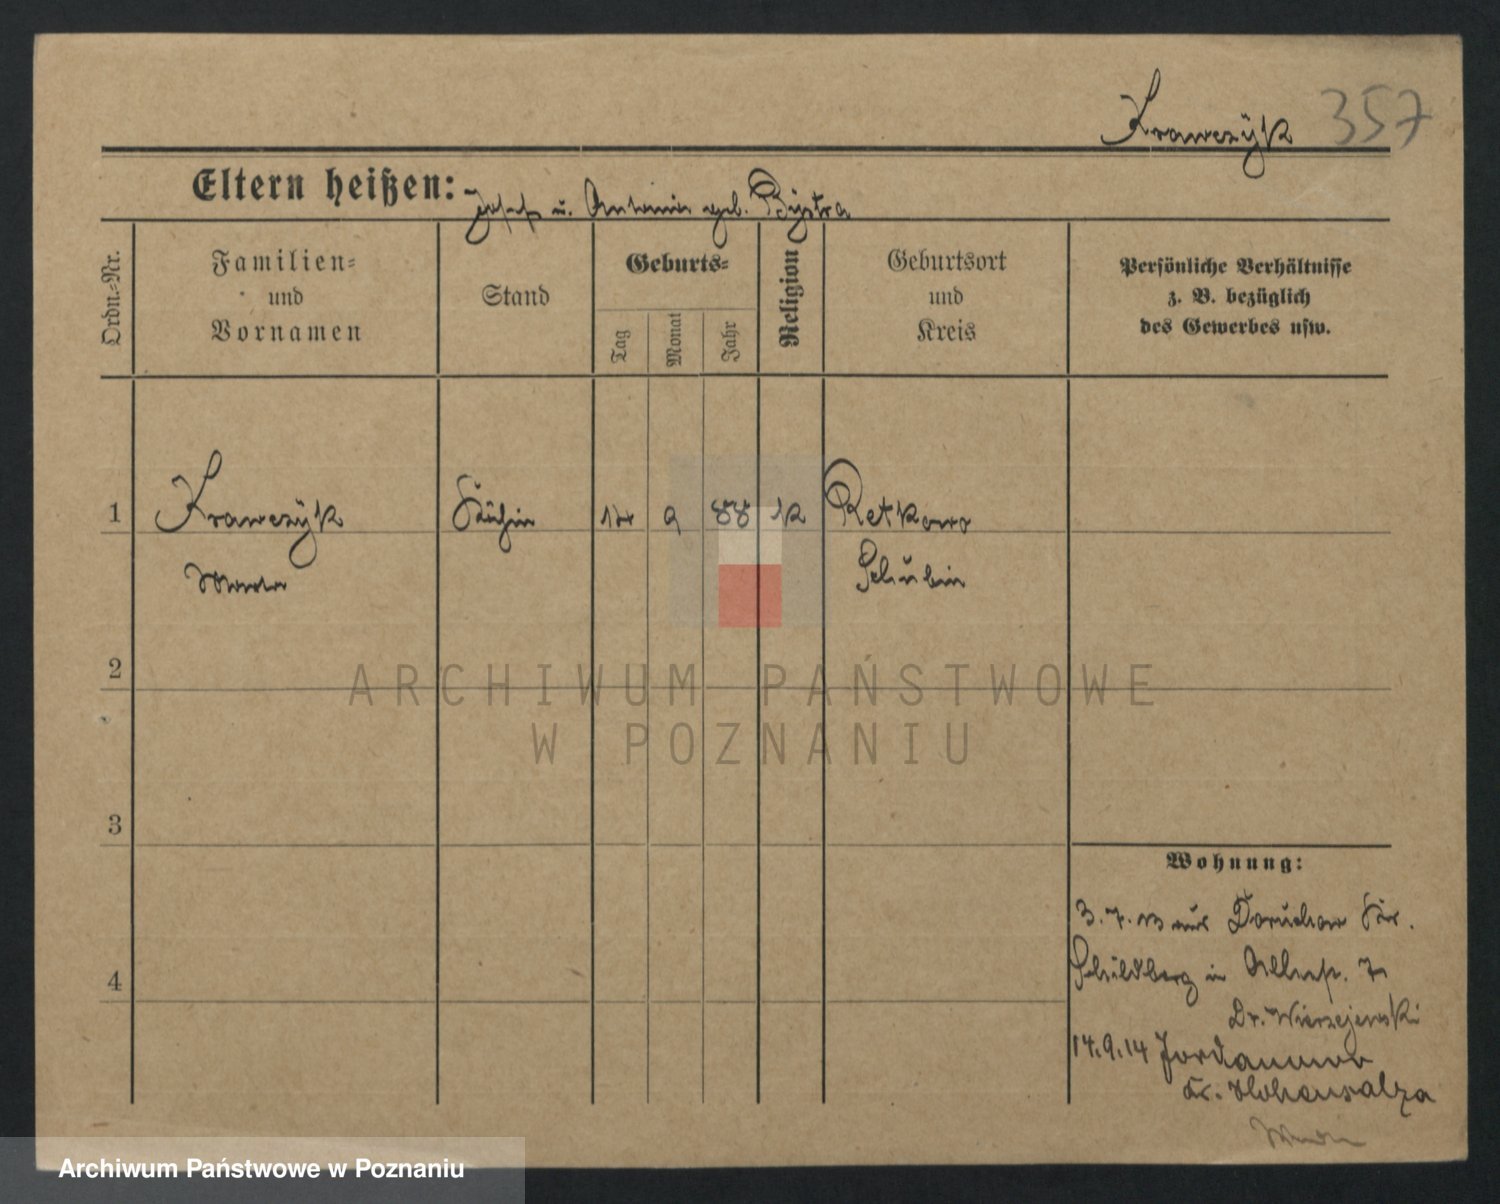 Krawczÿk 357
Eltern heißen: Josef u. Antonie geb. Bÿstra
Ordn.-Nr.
Familien-
und
Vornamen
Stand
Geburts-
Tag
Monat
Jahr
Religion
Geburtsort
und
Kreis
Persönliche Verhältnisse
z. B. bezüglich
des Gewerbes usw.
1 Krawczÿk 9 88 k Retkowo
Schubin
2
ARCHIWUM PAŃSTWOWE
W POZNANIU
3
Wohnung:
3.7.13 aus Doruchow Kr.
4
Schildberg in 7
Dr. Wierzejewski
14.9.14 Jordanowo
Kr. Hohensalza
Archiwum Państwowe w Poznaniu